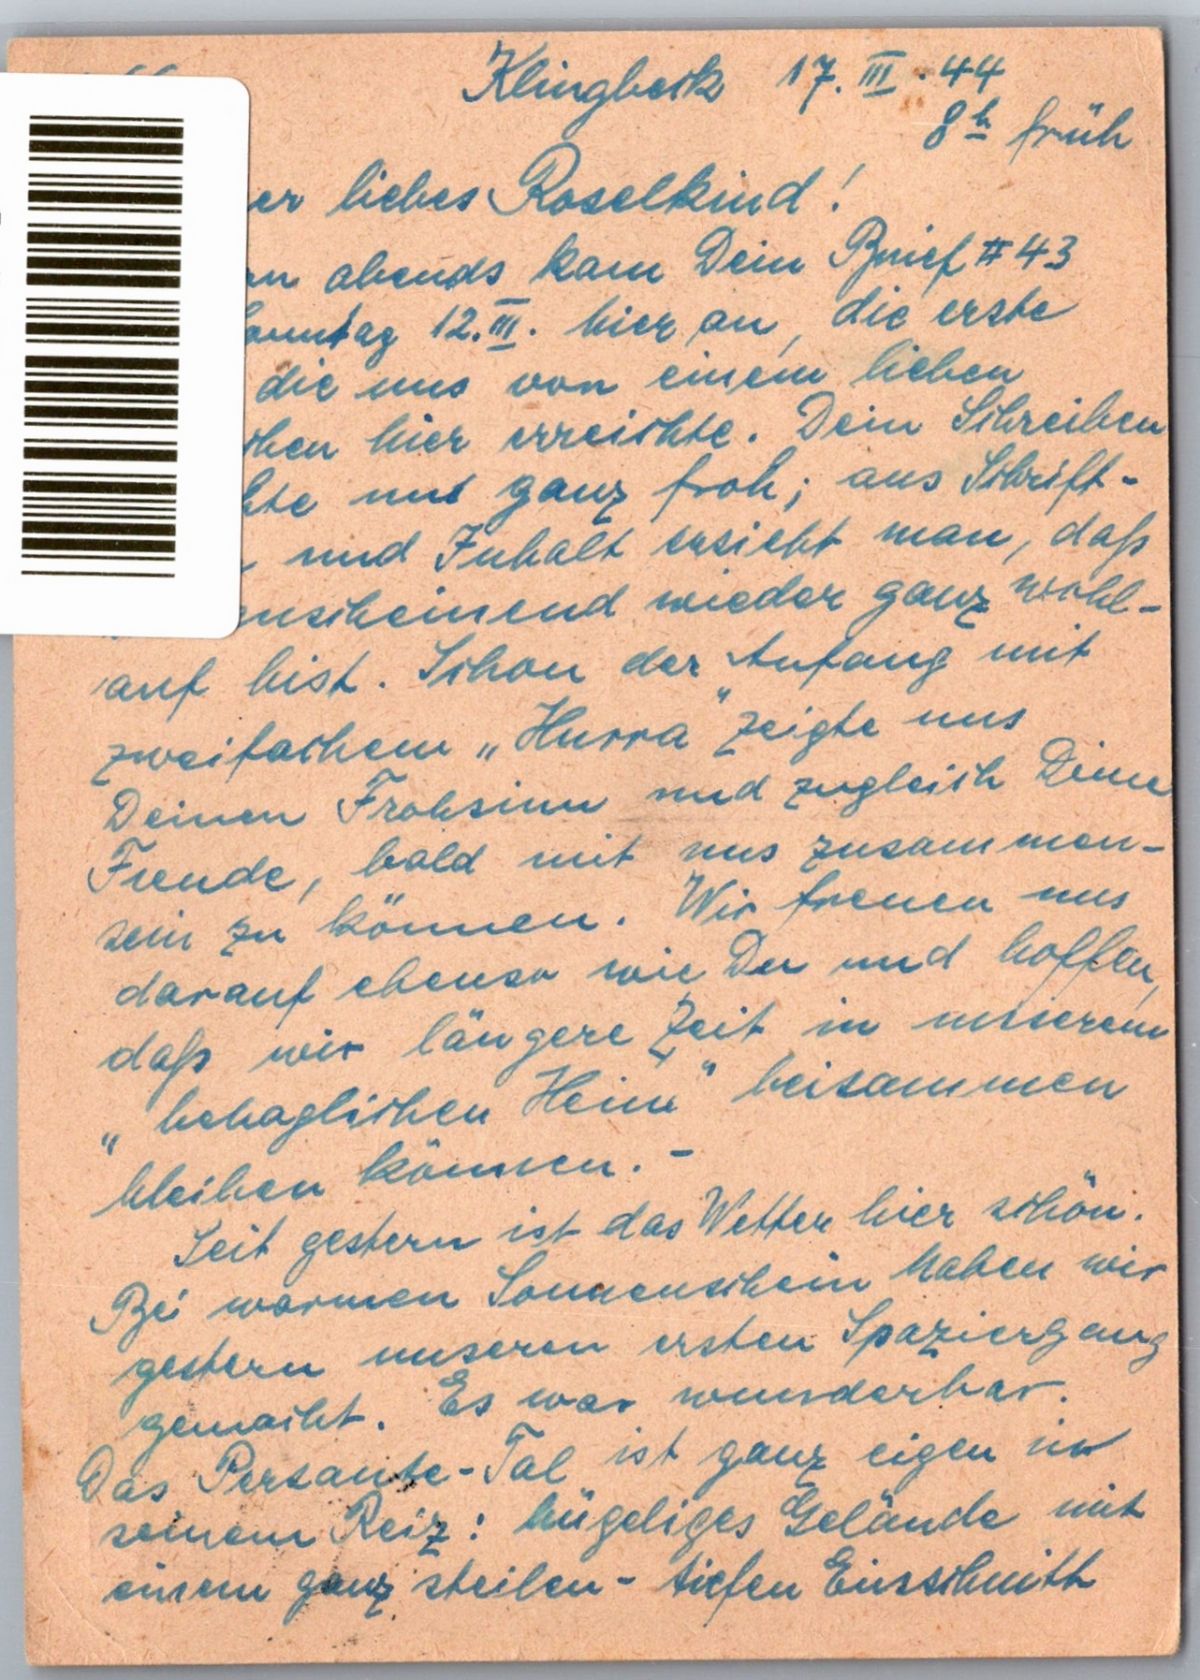 Klingbeck 17. III. 44
8h früh
er liebes Roselkind!
rn abends kam Dein Brief #43
Sonntag 12. III. hier an, die erste
die uns von einem lieben
chen hier erreichte. Dein Schreiben
hte uns ganz froh; aus Schrift-
und Inhalt ersieht man, daß
anscheinend wieder ganz wohl-
auf bist. Schon der Anfang mit
zweifachem „Hurra" zeigte uns
Deinen Frohsinn und zugleich Deine
Freude, bald mit uns zusammen-
sein zu können. Wir freuen uns
darauf ebenso wie Du und hoffen,
daß wir längere Zeit in unserem
„behaglichen Heim" beisammen
bleiben können. -
Seit gestern ist das Wetter hier schön.
Bei warmen Sonnenschein haben wir
gestern unseren ersten Spaziergang
gemacht. Es war wunderbar.
Das Persante-Tal ist ganz eigen in
seinem Reiz: hügeliges Gelände mit
einem ganz steilen - tiefen Einschnitt